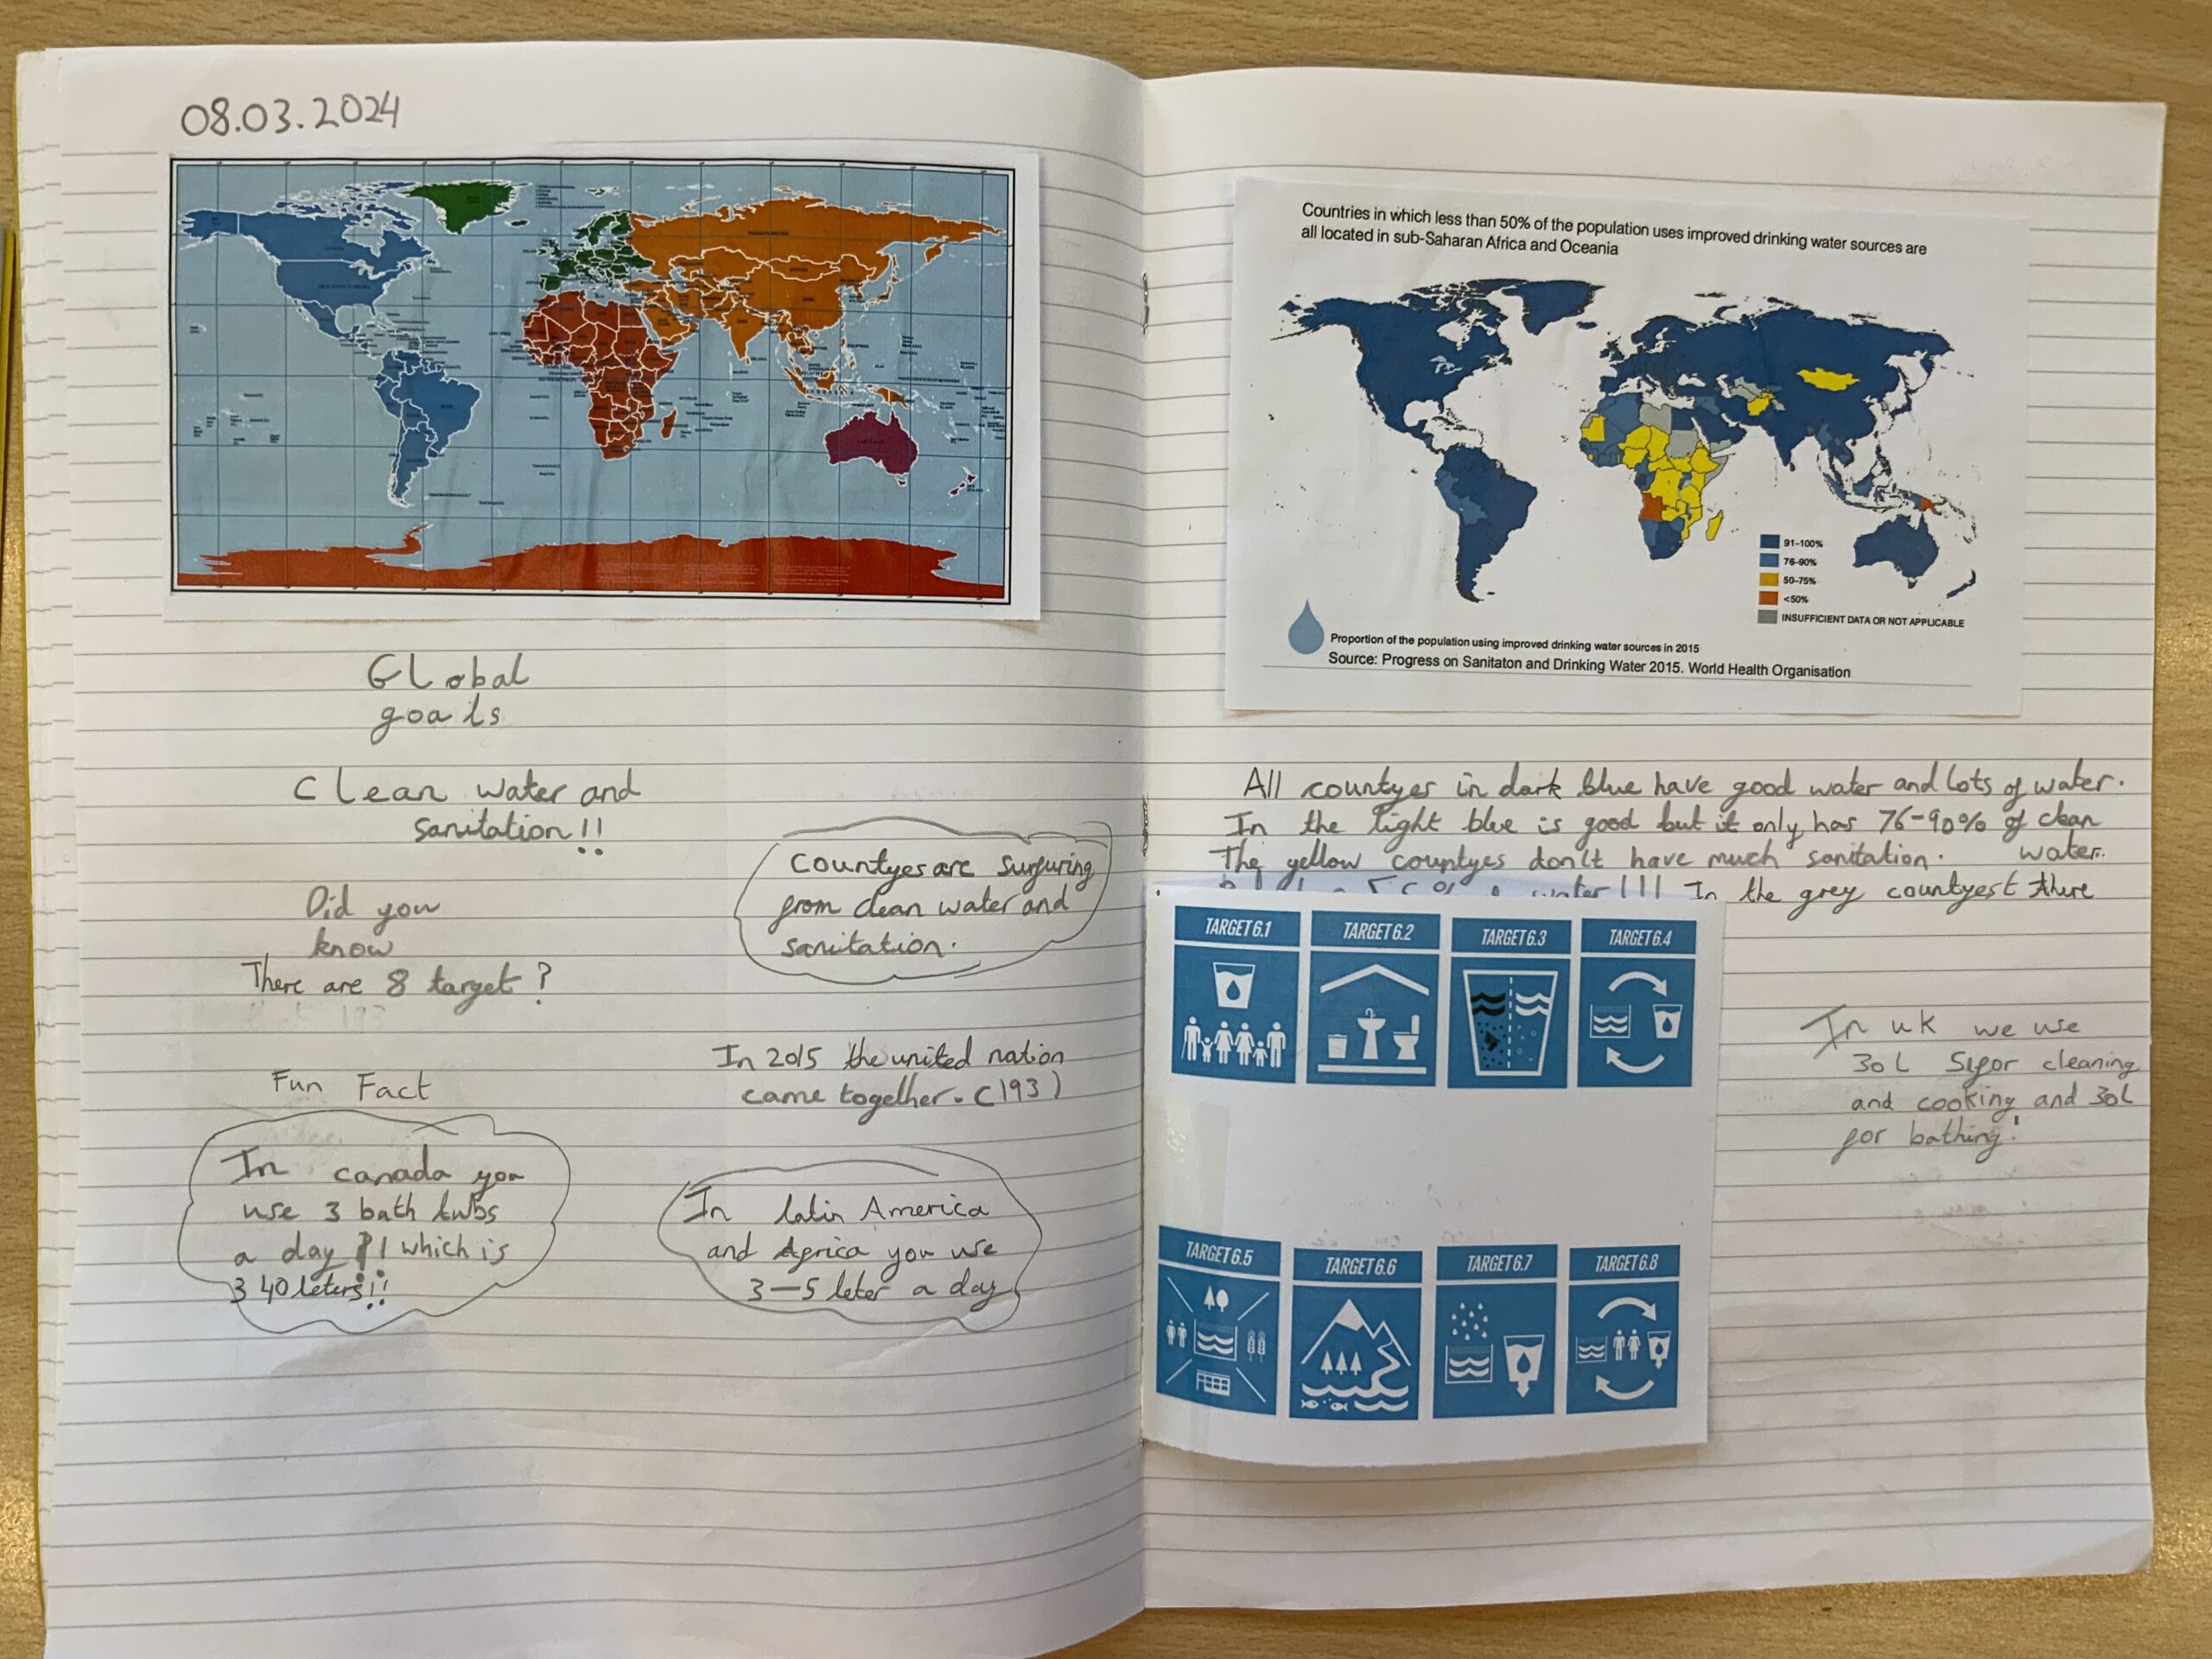 08.03.2024
Global
goals
Clean water and
sanitation!!
Did you
know
There are 8 target?
Countyes are surfuring
from clean water and
sanitation.
In 2015 the united nation
came together. (193)
Fun Fact
In canada you
use 3 bath tubs
a day 1 which is
340 leters!!
In latin America
and Africa you use
3-5 leter a day
Countries in which less than 50% of the population uses improved drinking water sources are
all located in sub-Saharan Africa and Oceania
91-100%
76-90%
50-75%
<50%
INSUFFICIENT DATA OR NOT APPLICABLE
Proportion of the population using improved drinking water sources in 2015
Source: Progress on Sanitaton and Drinking Water 2015. World Health Organisation
All countyes in dark blue have good water and lots of water.
In the light blue is good but it only has 76-90% of clean
water.
The yellow countyes don't have much sanitation.
water!!! In the grey countyest there
TARGET 6.1
TARGET 6.2
TARGET 6.3
TARGET 6.4
TARGET 6.5
TARGET 6.6
TARGET 6.7
TARGET 6.8
In uk we use
30L for cleaning
and cooking and 30L
for bathing!